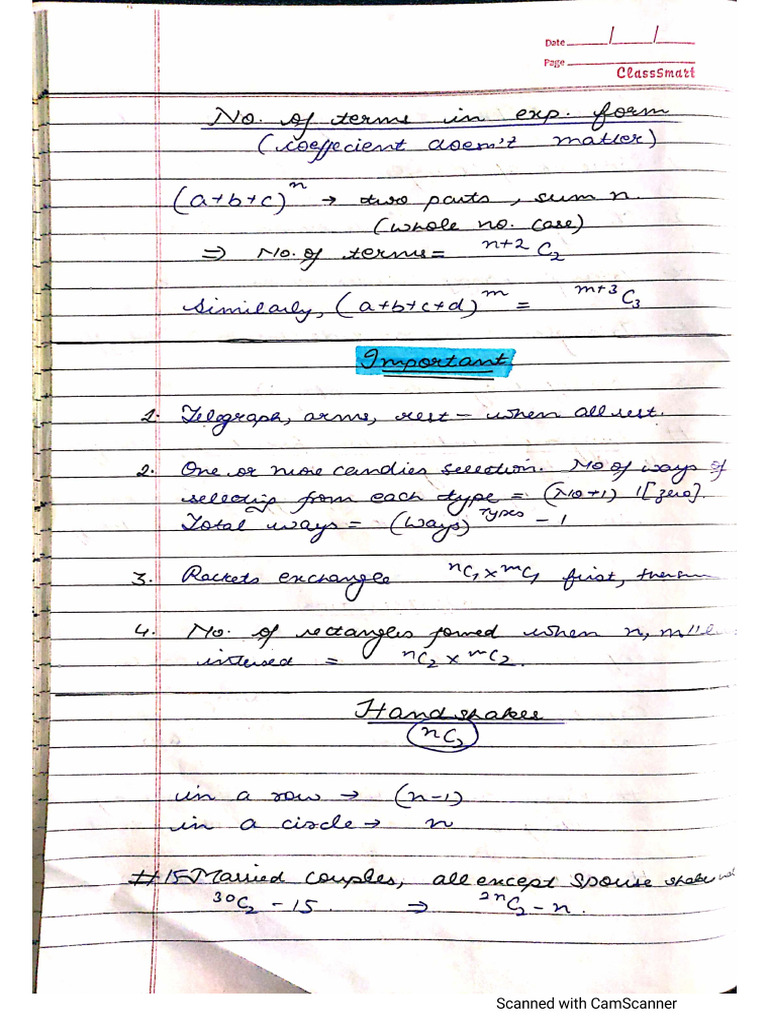 Date / /
Page
ClassSmart
No. of terms in exp. form
(coeffecient doesn't matter)
(a+b+c)ⁿ → two parts, sum n.
(whole no. case)
⇒ No. of terms = ⁿ⁺²C₂
Similarly, (a+b+c+d)ᵐ = ᵐ⁺³C₃
Important
1. Telegraph, arms, rest – when all rest.
2. One or more candies selection. No of ways of
selecting from each type = (No+1) '[zero].
Total ways = (ways)ᵀʸᵖᵉˢ - 1
3. Rackets exchange ⁿC₁ x ᵐC₁ first, then
4. No. of rectangles formed when n, m ||
intersed = ⁿC₂ x ᵐC₂.
Handshakes
ⁿC₂
in a row → (n-1)
in a circle → n
# 15 Married couples, all except spouse shake
³⁰C₂ - 15. ⇒ ²ⁿC₂ - n.
Scanned with CamScanner